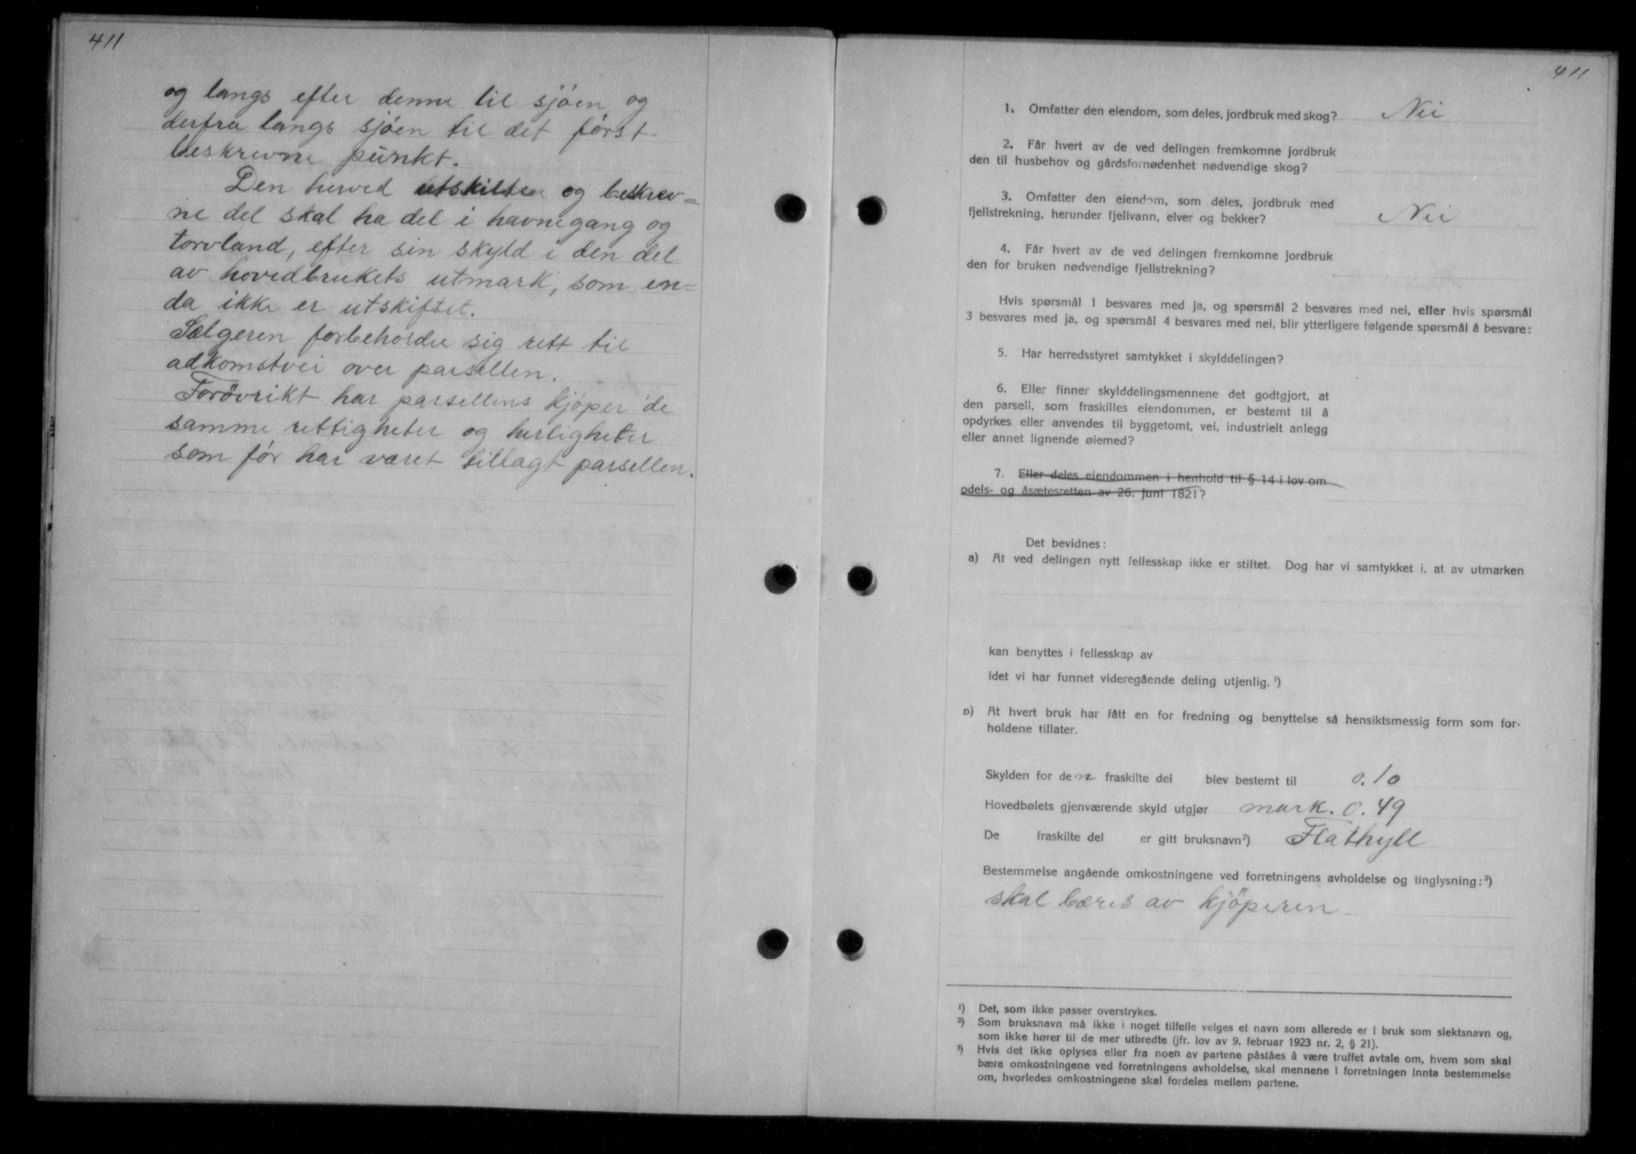 411
og langs efter denne til sjöen og
derfra langs sjöen til det först
beskrevne punkt.
Den herved utskilte og beskrev=
ne del skal ha del i havnegang og
torvland, efter sin skyld i den del
av hovedbrukets utmark, som en=
da ikke er utskiftet.
Sælgeren forbeholder sig rett til
adkomstvei over parsellen.
Forövrikt har parsellens kjöper de
samme rettigheter og herligheter
som för har været tillagt parsellen.
411
1. Omfatter den eiendom, som deles, jordbruk med skog? Nei
2. Får hvert av de ved delingen fremkomne jordbruk
den til husbehov og gårdsfornødenhet nødvendige skog?
3. Omfatter den eiendom, som deles, jordbruk med
fjellstrekning, herunder fjellvann, elver og bekker? Nei
4. Får hvert av de ved delingen fremkomne jordbruk
den for bruken nødvendige fjellstrekning?
Hvis spørsmål 1 besvares med ja, og spørsmål 2 besvares med nei, eller hvis spørsmål
3 besvares med ja, og spørsmål 4 besvares med nei, blir ytterligere følgende spørsmål å besvare:
5. Har herredsstyret samtykket i skylddelingen?
6. Eller finner skylddelingsmennene det godtgjort, at
den parsell, som fraskilles eiendommen, er bestemt til å
opdyrkes eller anvendes til byggetomt, vei, industrielt anlegg
eller annet lignende øiemed?
7. Eller deles eiendommen i henhold til § 14 i lov om
odels- og åsætesretten av 26. juni 1821?
Det bevidnes:
a) At ved delingen nytt fellesskap ikke er stiftet. Dog har vi samtykket i, at av utmarken
kan benyttes i fellesskap av
idet vi har funnet videregående deling utjenlig. ¹)
b) At hvert bruk har fått en for fredning og benyttelse så hensiktsmessig form som for-
holdene tillater.
Skylden for den fraskilte del blev bestemt til 0.10
Hovedbølets gjenværende skyld utgjør mark. 0.49
De fraskilte del er gitt bruksnavn²) Flathyll
Bestemmelse angående omkostningene ved forretningens avholdelse og tinglysning:³)
skal bæres av kjöperen
¹) Det, som ikke passer overstrykes.
²) Som bruksnavn må ikke i noget tilfelle velges et navn som allerede er i bruk som slektsnavn og,
som ikke hører til de mer utbredte (jfr. lov av 9. februar 1923 nr. 2, § 21).
³) Hvis det ikke oplyses eller fra noen av partene påståes å være truffet avtale om, hvem som skal
bære omkostningene ved forretningens avholdelse, skal mennene i forretningen innta bestemmelse
om, hvorledes omkostningene skal fordeles mellem partene.